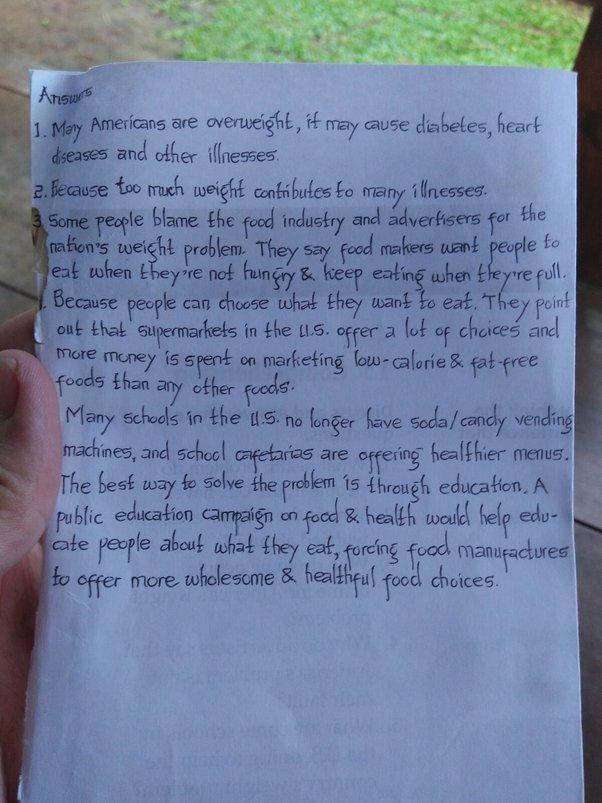 Answers
1. Many Americans are overweight, it may cause diabetes, heart
diseases and other illnesses.
2. Because too much weight contributes to many illnesses.
3. Some people blame the food industry and advertisers for the
nation's weight problem. They say food makers want people to
eat when they're not hungry & keep eating when they're full.
. Because people can choose what they want to eat. They point
out that supermarkets in the U.S. offer a lot of choices and
more money is spent on marketing low-calorie & fat-free
foods than any other foods.
Many schools in the U.S. no longer have soda/candy vending
machines, and school cafetarias are offering healthier menus.
The best way to solve the problem is through education. A
public education campaign on food & health would help edu-
cate people about what they eat, forcing food manufactures
to offer more wholesome & healthful food choices.